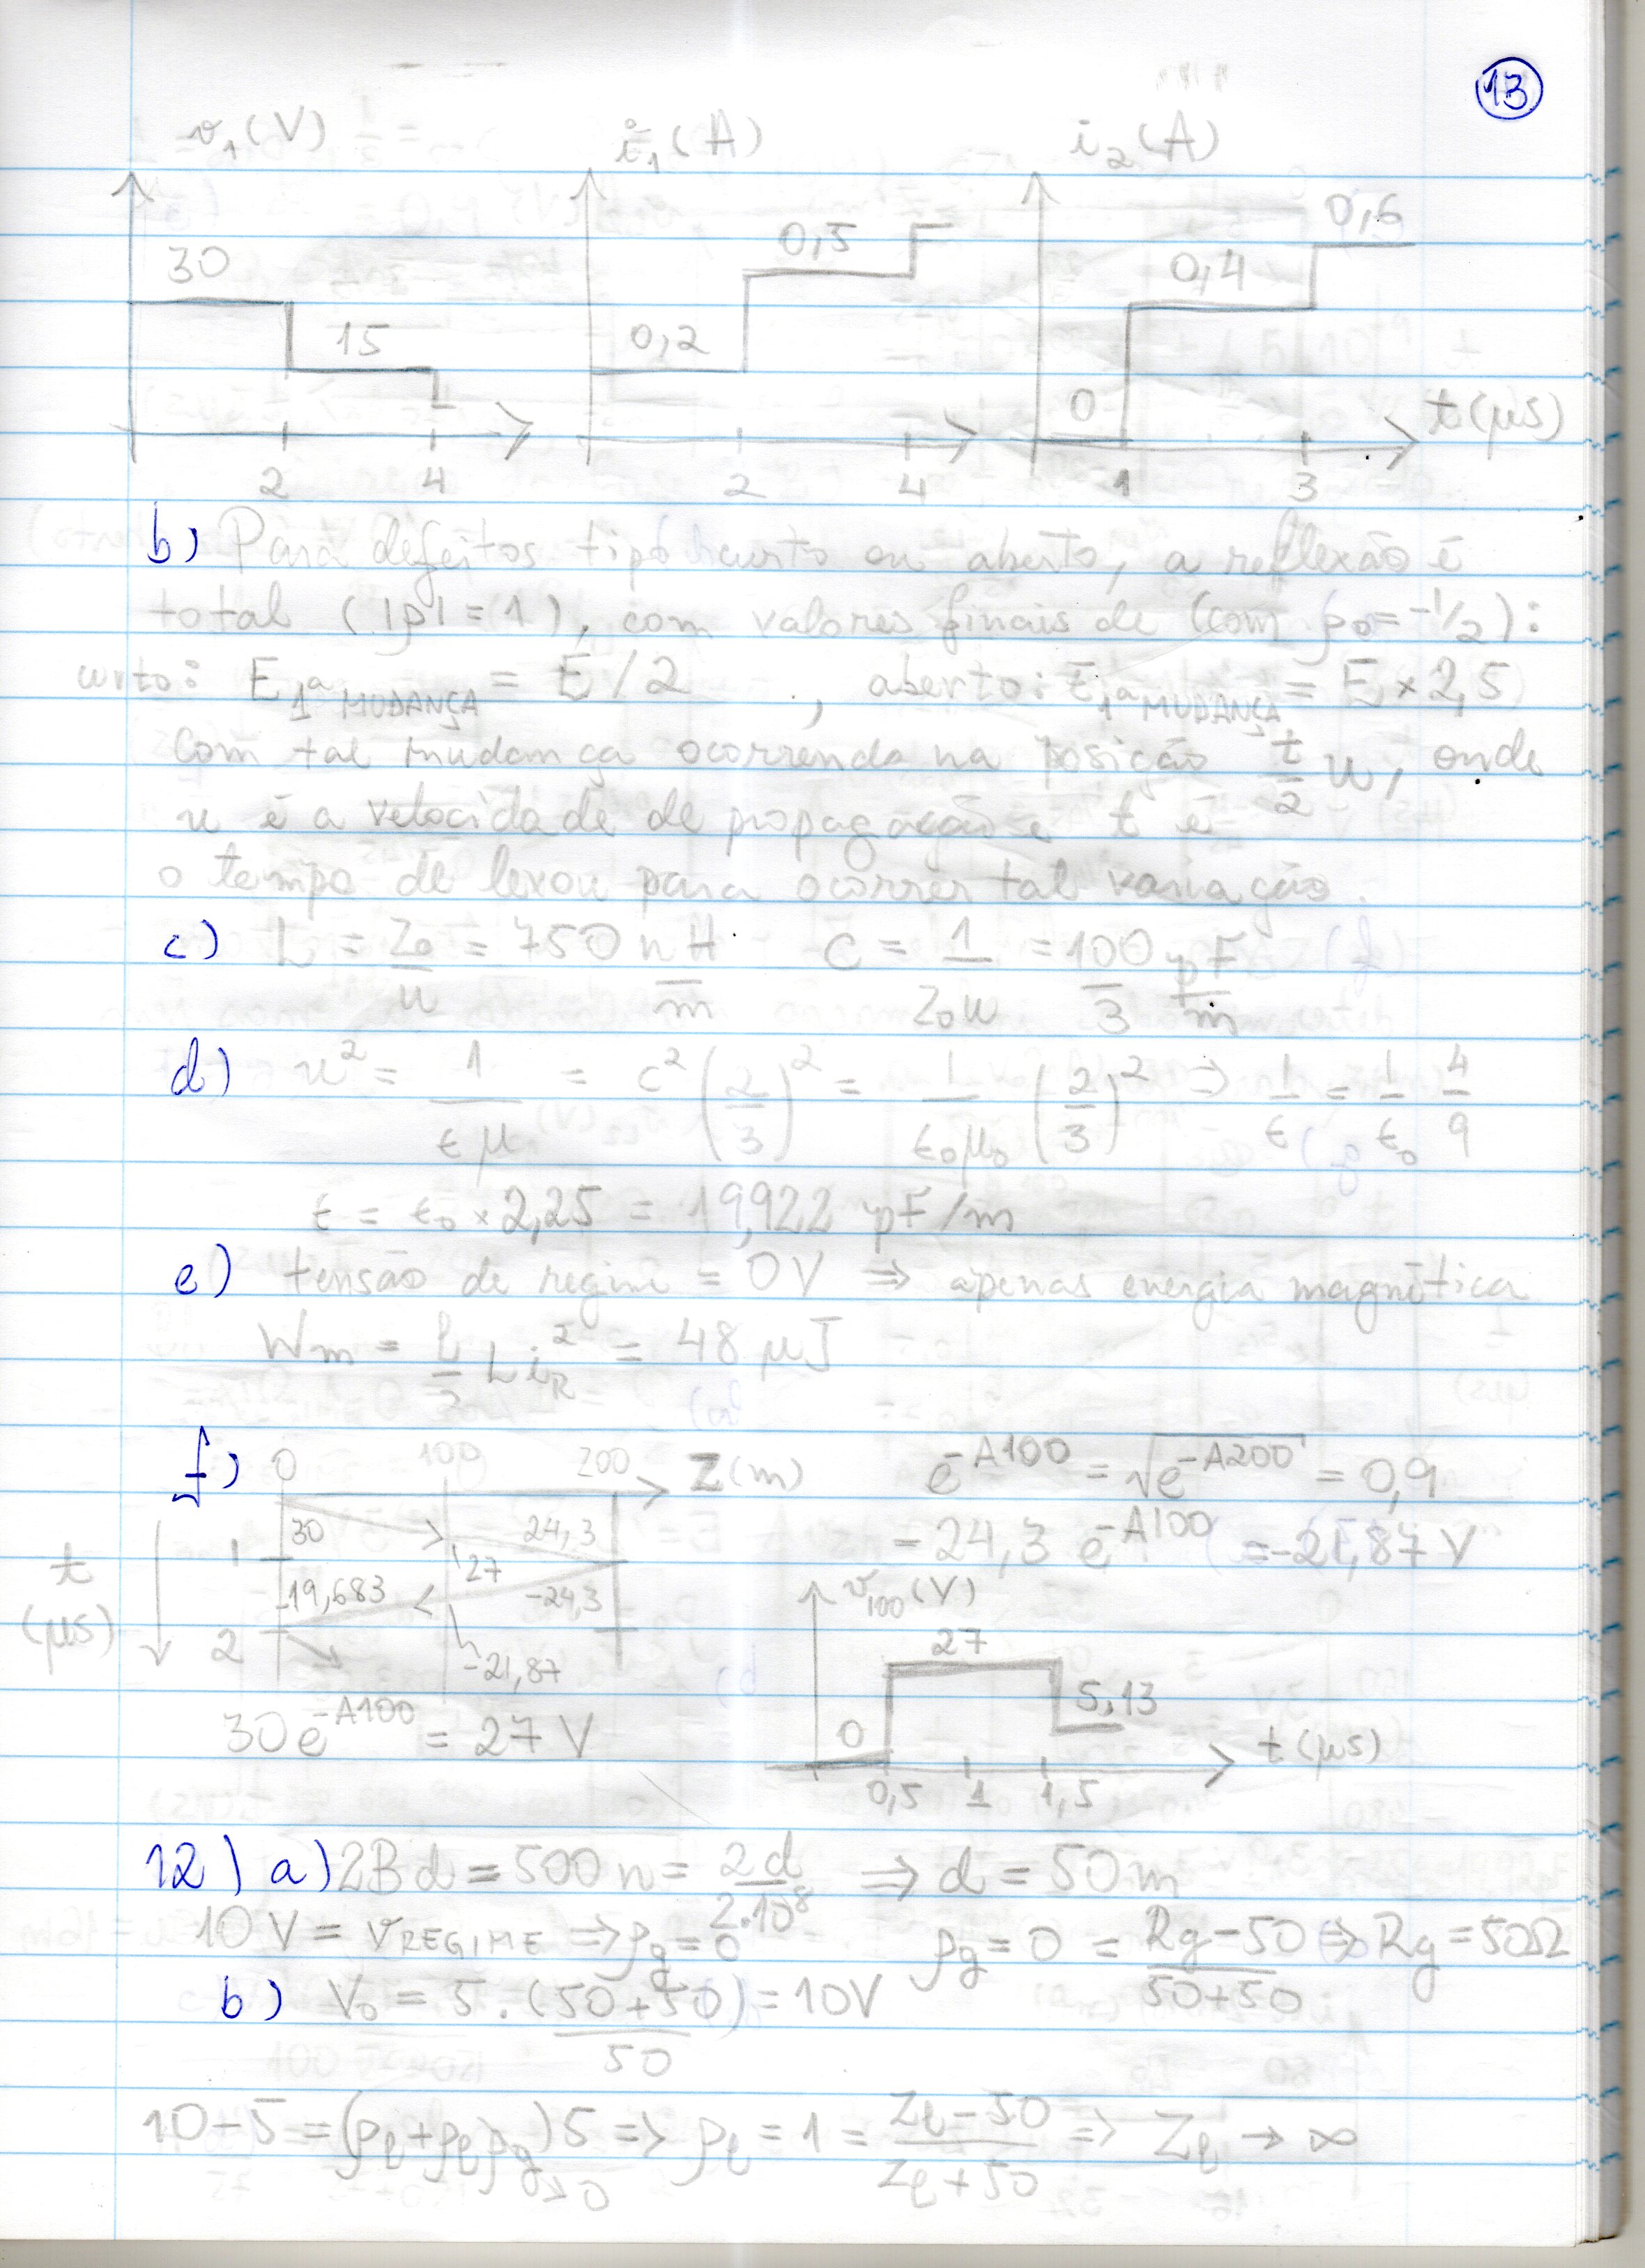 13
v₁(V) i₁(A) i₂(A)
30 15 2 4
0,2 0,5 2 4
0 0,4 0,6 1 3 t(μs)
b) Para defeitos tipo curto ou aberto, a reflexão é
total (|ρ| = 1), com valores finais de (com ρ₀ = -1/2):
curto: E 1ª MUDANÇA = E/2 , aberto: E 1ª MUDANÇA = E × 2,5
Com tal mudança ocorrendo na posição t/2 u, onde
u é a velocidade de propagação e t é
o tempo de lexou para ocorrer tal variação.
c) L = Z₀/u = 750 nH/m C = 1/(Z₀u) = 100/3 pF/m
d) u² = 1/(εμ) = c² (2/3)² = 1/(ε₀μ₀) (2/3)² ⇒ 1/ε = 1/ε₀ 4/9
ε = ε₀ × 2,25 = 19,922 pF/m
e) tensão de regime = 0V ⇒ apenas energia magnética
Wm = L i_R² = 48 μJ
f) 0 100 200 Z(m) e^-A100 = √(e^-A200) = 0,9
30 24,3 = 24,3 e^-A100 = -21,87 V
t 1 27
(μs) -19,683 -24,3 v₁₀₀(V)
2 -21,87 27
30 e^-A100 = 27 V 0 5,13 t(μs)
0,5 1 1,5
12) a) 2Bd = 500n = 2d/2.10⁸ ⇒ d = 50m
10V = v_REGIME ⇒ ρg = 0 ρg = 0 = (Rg-50)/(50+50) ⇒ Rg = 50Ω
b) V₀ = 5 . (50+50)/50 = 10V
10-5 = (ρℓ + ρℓρg)5 ⇒ ρℓ = 1 = (Zℓ-50)/(Zℓ+50) ⇒ Zℓ → ∞